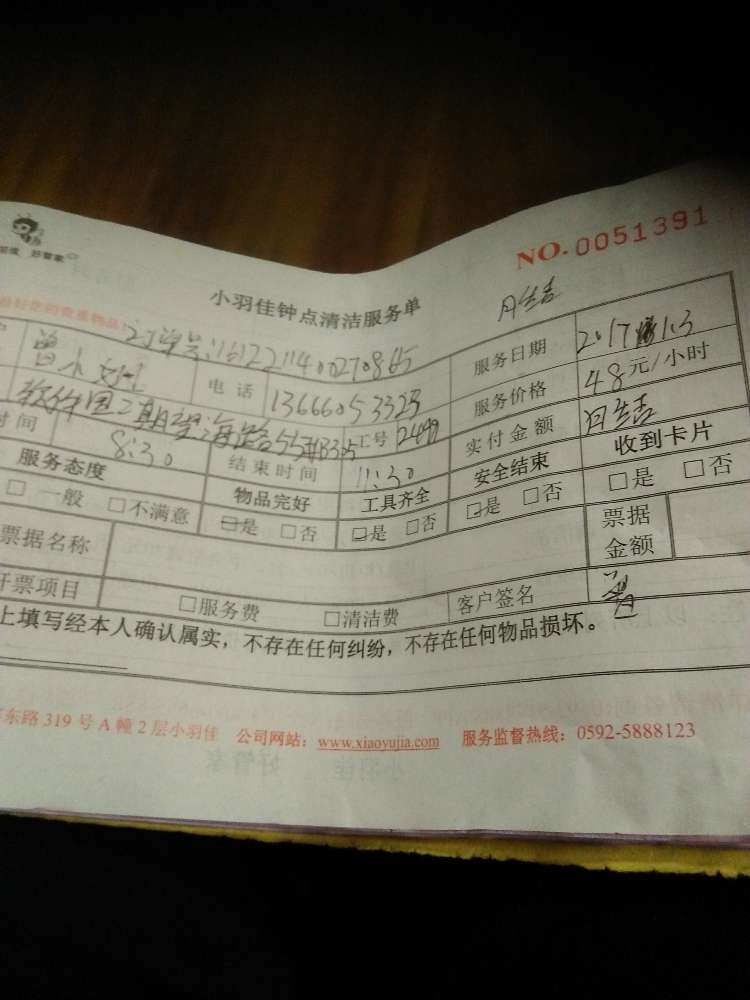 好管家
NO.0051391
小羽佳钟点清洁服务单 月结
订单号:1612211400270865
电话 13666053323 服务日期 2017 1.3
软件园二期望海路55号B305 工号 2499 服务价格 48元/小时
时间 8:30 结束时间 11:30 实付金额 月结
服务态度 物品完好 工具齐全 安全结束 收到卡片
□一般 □不满意 □是 □否 □是 □否 □是 □否 □是 □否
票据名称 票据金额
开票项目 □服务费 □清洁费 客户签名
上填写经本人确认属实，不存在任何纠纷，不存在任何物品损坏。
东路319号A幢2层小羽佳 公司网站：www.xiaoyujia.com 服务监督热线：0592-5888123